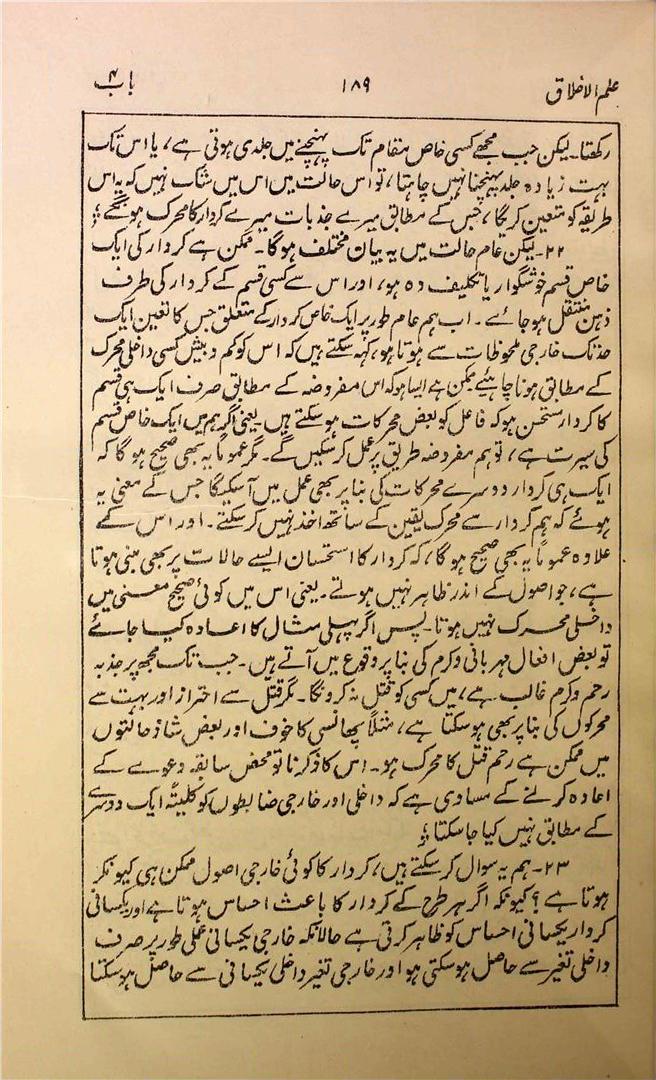 علم الاخلاق ۱۸۹ باب ۴
رکھتا۔ لیکن جب مجھے کسی خاص مقام تک پہنچنے میں جلدی ہوتی ہے، یا اس تک
بہت زیادہ جلد پہنچنا نہیں چاہتا، تو اس حالت میں اس میں شک نہیں کہ یہ اس
طریقہ کو متعین کریگا، جس کے مطابق میرے جذبات میرے کردار کا محرک ہونگے؛
۲۲۔ لیکن عام حالت میں یہ بیان مختلف ہوگا۔ ممکن ہے کردار کی ایک
خاص قسم خوشگوار یا تکلیف دہ ہو، اور اس سے کسی قسم کے کردار کی طرف
ذہن منتقل ہو جائے۔ اب ہم عام طور پر ایک خاص کردار کے متعلق جس کا تعین ایک
حد تک خارجی ملحوظات سے ہوتا ہو، کہہ سکتے ہیں کہ اس کو کم و بیش کسی داخلی محرک
کے مطابق ہونا چاہئیے ممکن ہے ایسا ہو کہ اس مفروضہ کے مطابق صرف ایک ہی قسم
کا کردار مستحسن ہو کہ فاعل کو بعض محرکات ہو سکتے ہیں یعنی اگر ہم میں ایک خاص قسم
کی سیرت ہے، تو ہم مفروضہ طریق پر عمل کر سکیں گے۔ مگر عموماً یہ بھی صحیح ہوگا کہ
ایک ہی کردار دوسرے محرکات کی بنا پر بھی عمل میں آسکیگا جس کے معنی یہ
ہوئے کہ ہم کردار سے محرک یقین کے ساتھ اخذ نہیں کر سکتے۔ اور اس کے
علاوہ عموماً یہ بھی صحیح ہوگا، کہ کردار کا استحسان ایسے حالات پر بھی مبنی ہوتا
ہے، جو اصول کے اندر ظاہر نہیں ہوتے۔ یعنی اس میں کوئی صحیح معنی میں
داخلی محرک نہیں ہوتا۔ پس اگر پہلی مثال کا اعادہ کیا جائے
تو بعض افعال مہربانی و کرم کی بنا پر وقوع میں آتے ہیں۔ جب تک مجھ پر جذبہ
رحم و کرم غالب ہے، میں کسی کو قتل نہ کرونگا۔ مگر قتل سے احتراز اور بہت سے
محرکوں کی بنا پر بھی ہو سکتا ہے، مثلاً پھانسی کا خوف اور بعض شاذ حالتوں
میں ممکن ہے رحم قتل کا محرک ہو۔ اس کا ذکر نا تو محض سابقہ دعوے کے
اعادہ کرنے کے مساوی ہے کہ داخلی اور خارجی ضابطوں کو کلیتہً ایک دوسرے
کے مطابق نہیں کیا جا سکتا؛
۲۳۔ ہم یہ سوال کر سکتے ہیں، کردار کا کوئی خارجی اصول ممکن ہی کیونکر
ہوتا ہے؟ کیونکہ اگر ہر طرح کے کردار کا باعث احساس ہوتا ہے اور یکسانی
کردار یکسانی احساس کو ظاہر کرتی ہے حالانکہ خارجی یکسانی عملی طور پر صرف
داخلی تغیر سے حاصل ہو سکتی ہو اور خارجی تغیر داخلی یکسانی سے حاصل ہو سکتا